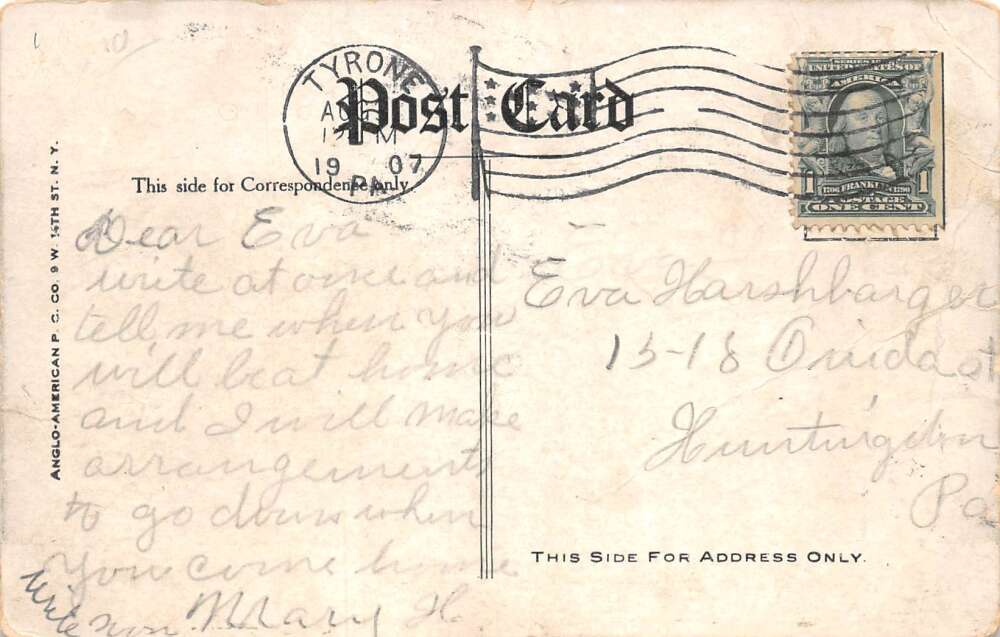 TYRONE
12 M
19 07
PA
Post Card
SERIES 1902
UNITED STATES OF
AMERICA
1 1706 FRANKLIN 1790 1
POSTAGE
ONE CENT
This side for Correspondence only
ANGLO-AMERICAN P. C. CO. 9 W. 15TH ST. N. Y.
Dear Eva
write at once and
tell me when you
will be at home
and I will make
arrangements
to go down when
You come home
Mary H.
write
Eva Harshbarger
15-18 Oneida st
Huntingdon
Pa
THIS SIDE FOR ADDRESS ONLY.